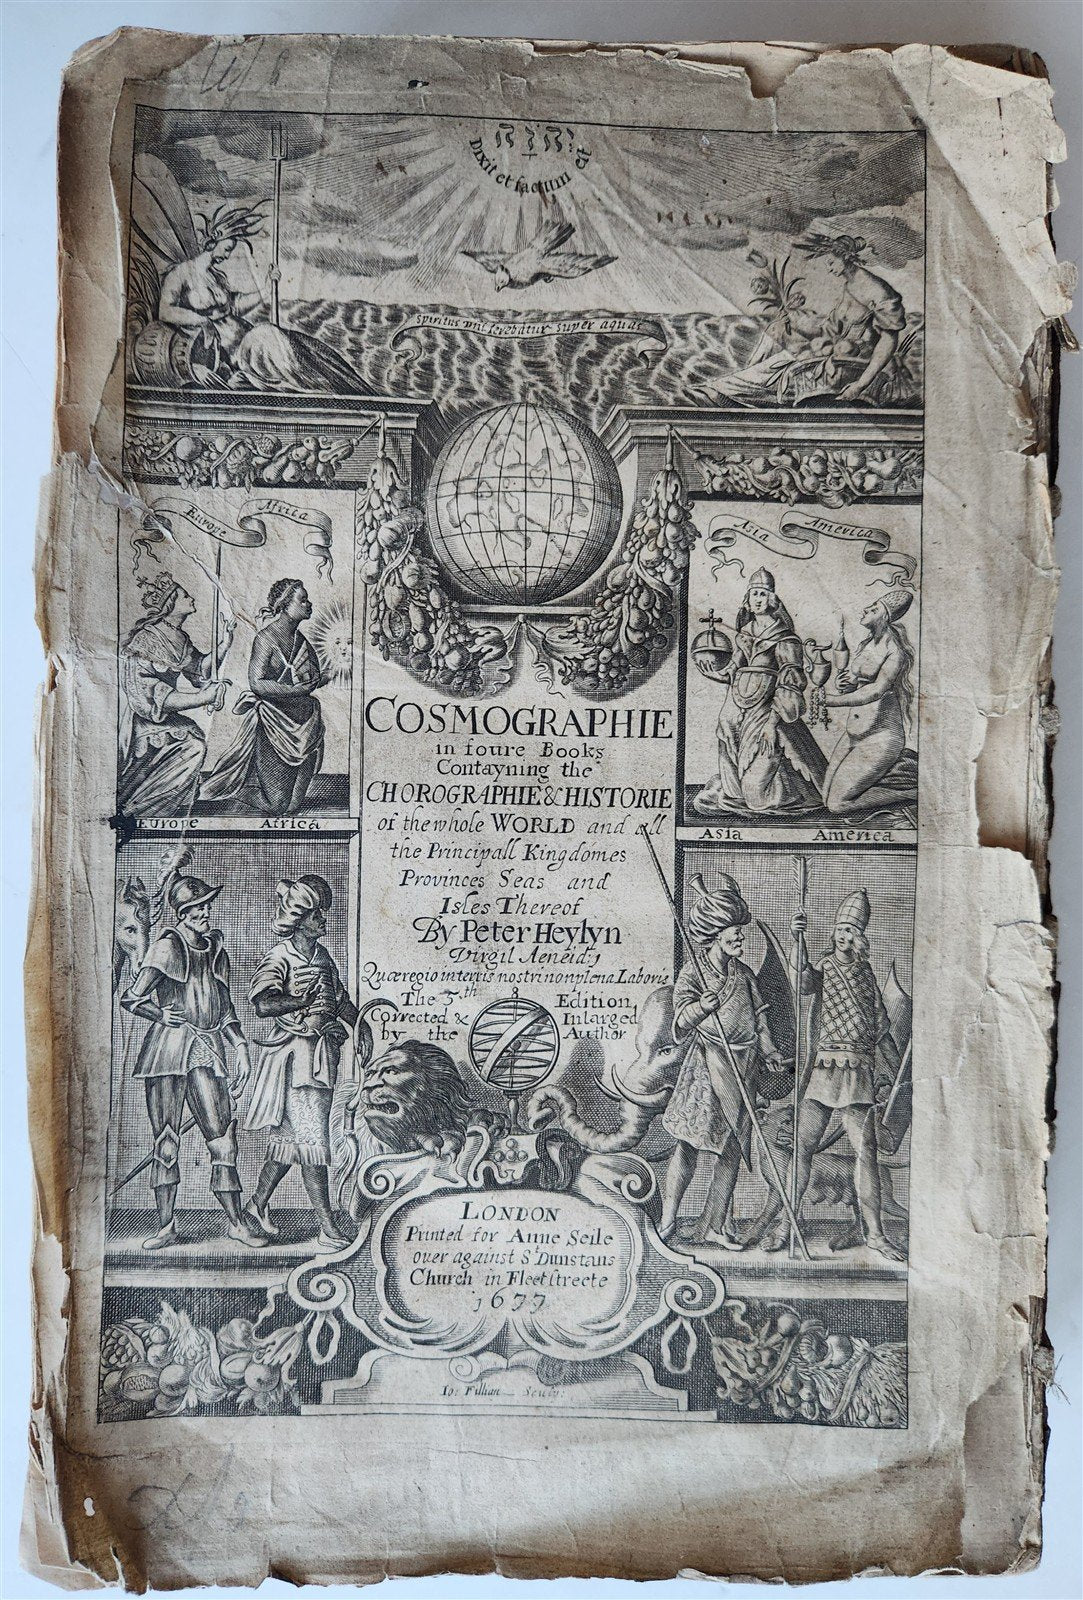 Dixit et factum Est
Spiritus mit ferebatur super aquas
Europe Africa
Asia America
COSMOGRAPHIE
in foure Books
Contayning the
CHOROGRAPHIE & HISTORIE
of the whole WORLD and all
the Principall Kingdomes
Provinces Seas and
Isles Thereof
By Peter Heylyn
Virgil Aeneid: 1
Quæ regio in terris nostri non plena Laboris
The 5th Edition
Corrected & Inlarged
by the Author
Europe Africa
Asia America
LONDON
Printed for Anne Seile
over against St Dunstans
Church in Fleetstreete
1677
Ro: Vaughan Sculp: